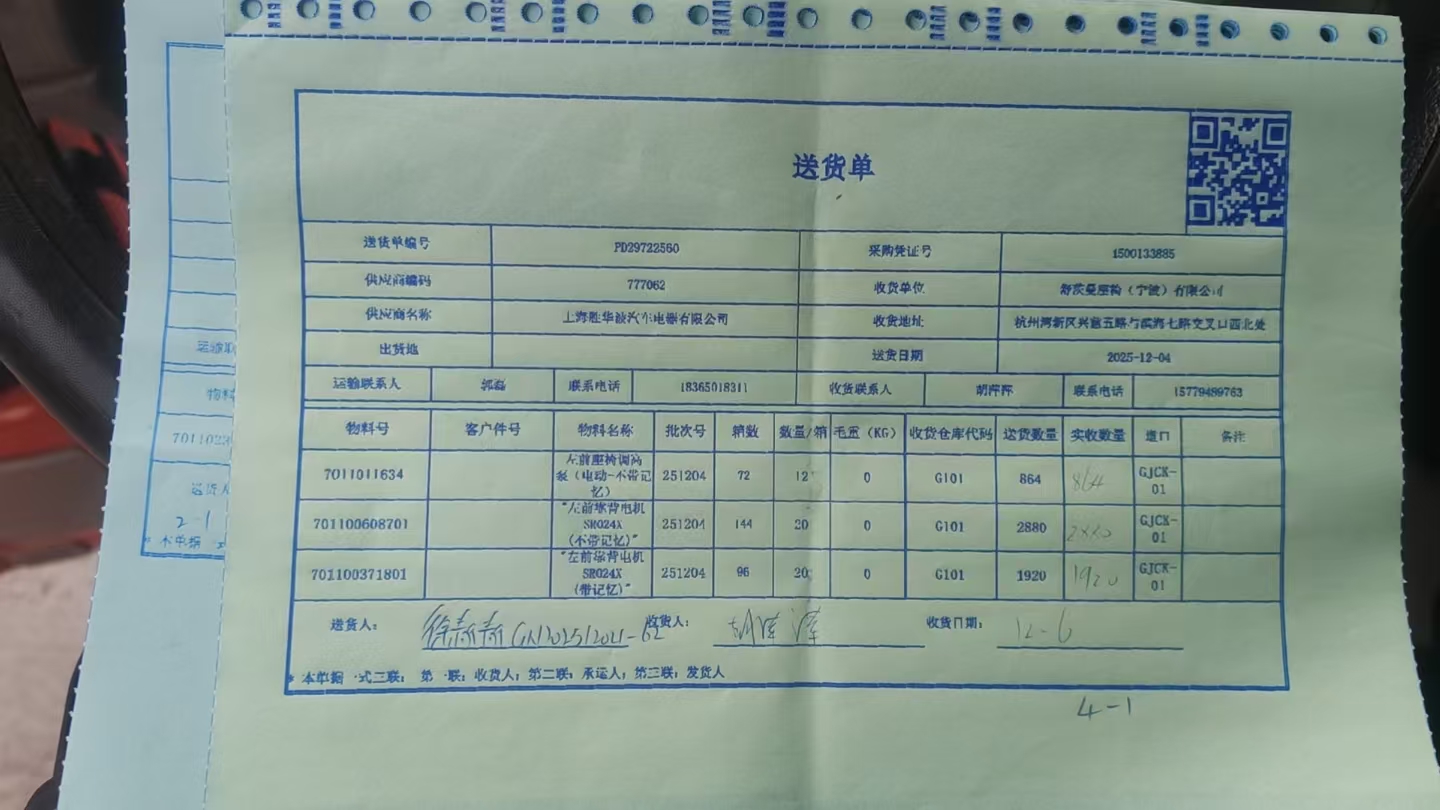 送货单
送货单编号 PD29722560 采购凭证号 1500133885
供应商编码 777062 收货单位 舒茨曼座椅（宁波）有限公司
供应商名称 上海胜华波汽车电器有限公司 收货地址 杭州湾新区兴慈五路与滨海七路交叉口西北处
出货地 送货日期 2025-12-04
运输联系人 郭磊 联系电话 18365018311 收货联系人 胡萍萍 联系电话 15779489763
物料号 客户件号 物料名称 批次号 箱数 数量/箱 毛重（KG） 收货仓库代码 送货数量 实收数量 道口 备注
7011011634 左前座椅调高泵（电动-不带记忆） 251204 72 12 0 G101 864 864 GJCK-01
701100608701 "左前靠背电机SR024X（不带记忆）" 251204 144 20 0 G101 2880 GJCK-01
701100371801 "左前靠背电机SR024X（带记忆）" 251204 96 20 0 G101 1920 1920 GJCK-01
送货人： 收货人： 收货日期： 12-6
* 本单据一式三联：第一联：收货人；第二联：承运人，第三联：发货人
4-1
运输联
物料
7011023
送货人
2-1
* 本单据